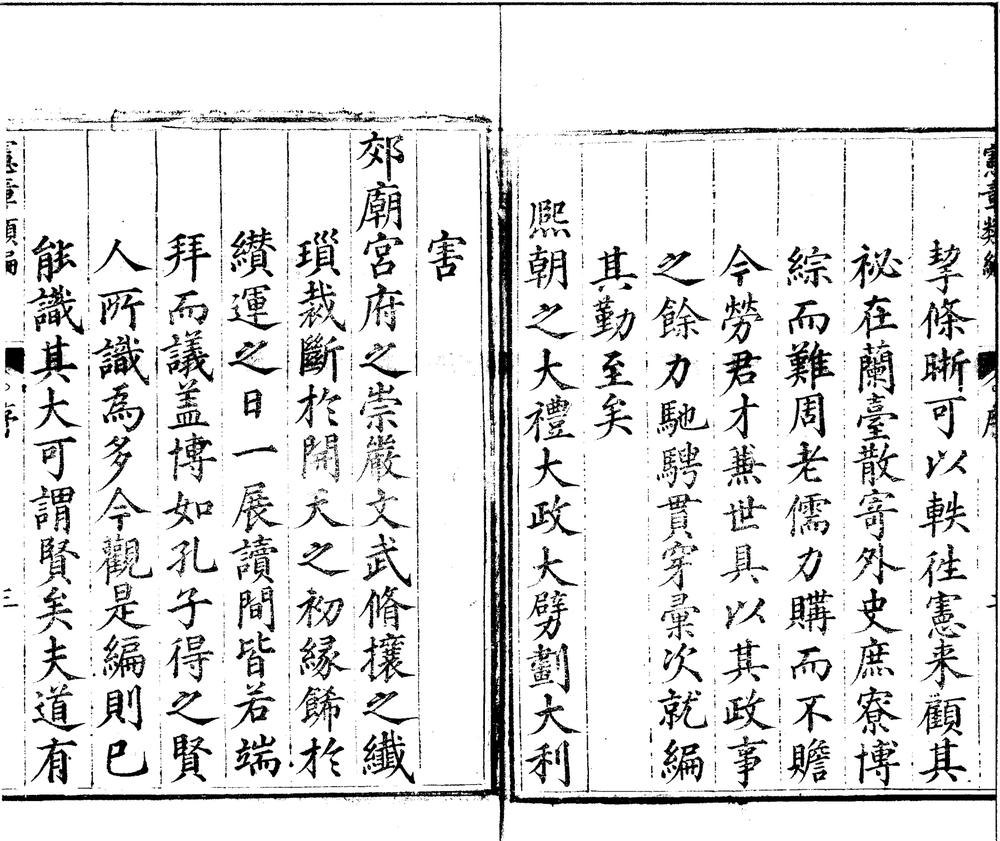 憲章類編
挈條晰可以軼徃憲来顧其
祕在蘭臺散寄外史庶寮博
綜而難周老儒力購而不贍
今勞君才兼世具以其政事
之餘力馳騁貫穿彙次就編
其勤至矣
熈朝之大禮大政大劈劃大利
害
郊廟宮府之崇嚴文武脩攘之纖
瑣裁斷於開天之初緣餙於
纉運之日一展讀間皆若端
拜而議蓋博如孔子得之賢
人所識為多今觀是編則巳
能識其大可謂賢矣夫道有
憲章類編
序
三